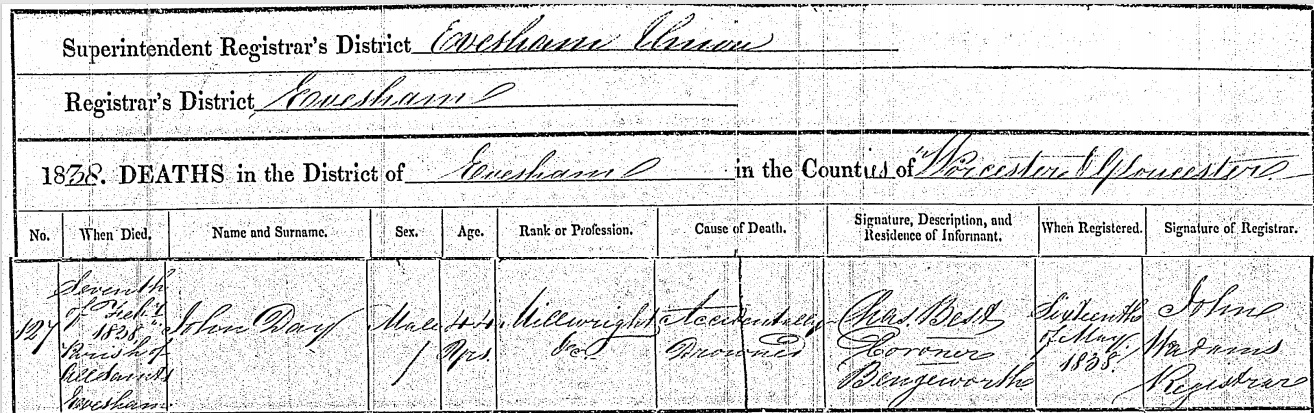 Superintendent Registrar's District Evesham Union
Registrar's District Evesham
1838. DEATHS in the District of Evesham in the Counties of Worcester & Gloucester
No. When Died. Name and Surname. Sex. Age. Rank or Profession. Cause of Death. Signature, Description, and Residence of Informant. When Registered. Signature of Registrar.
127
Seventh
of Feb.y
1838
Parish of
All Saints
Evesham
John Day
Male
44
Yrs.
Millwright
&c
Accidentally
Drowned
Chas. Best
Coroner
Bengeworth
Sixteenth
of May
1838.
John
Adams
Registrar